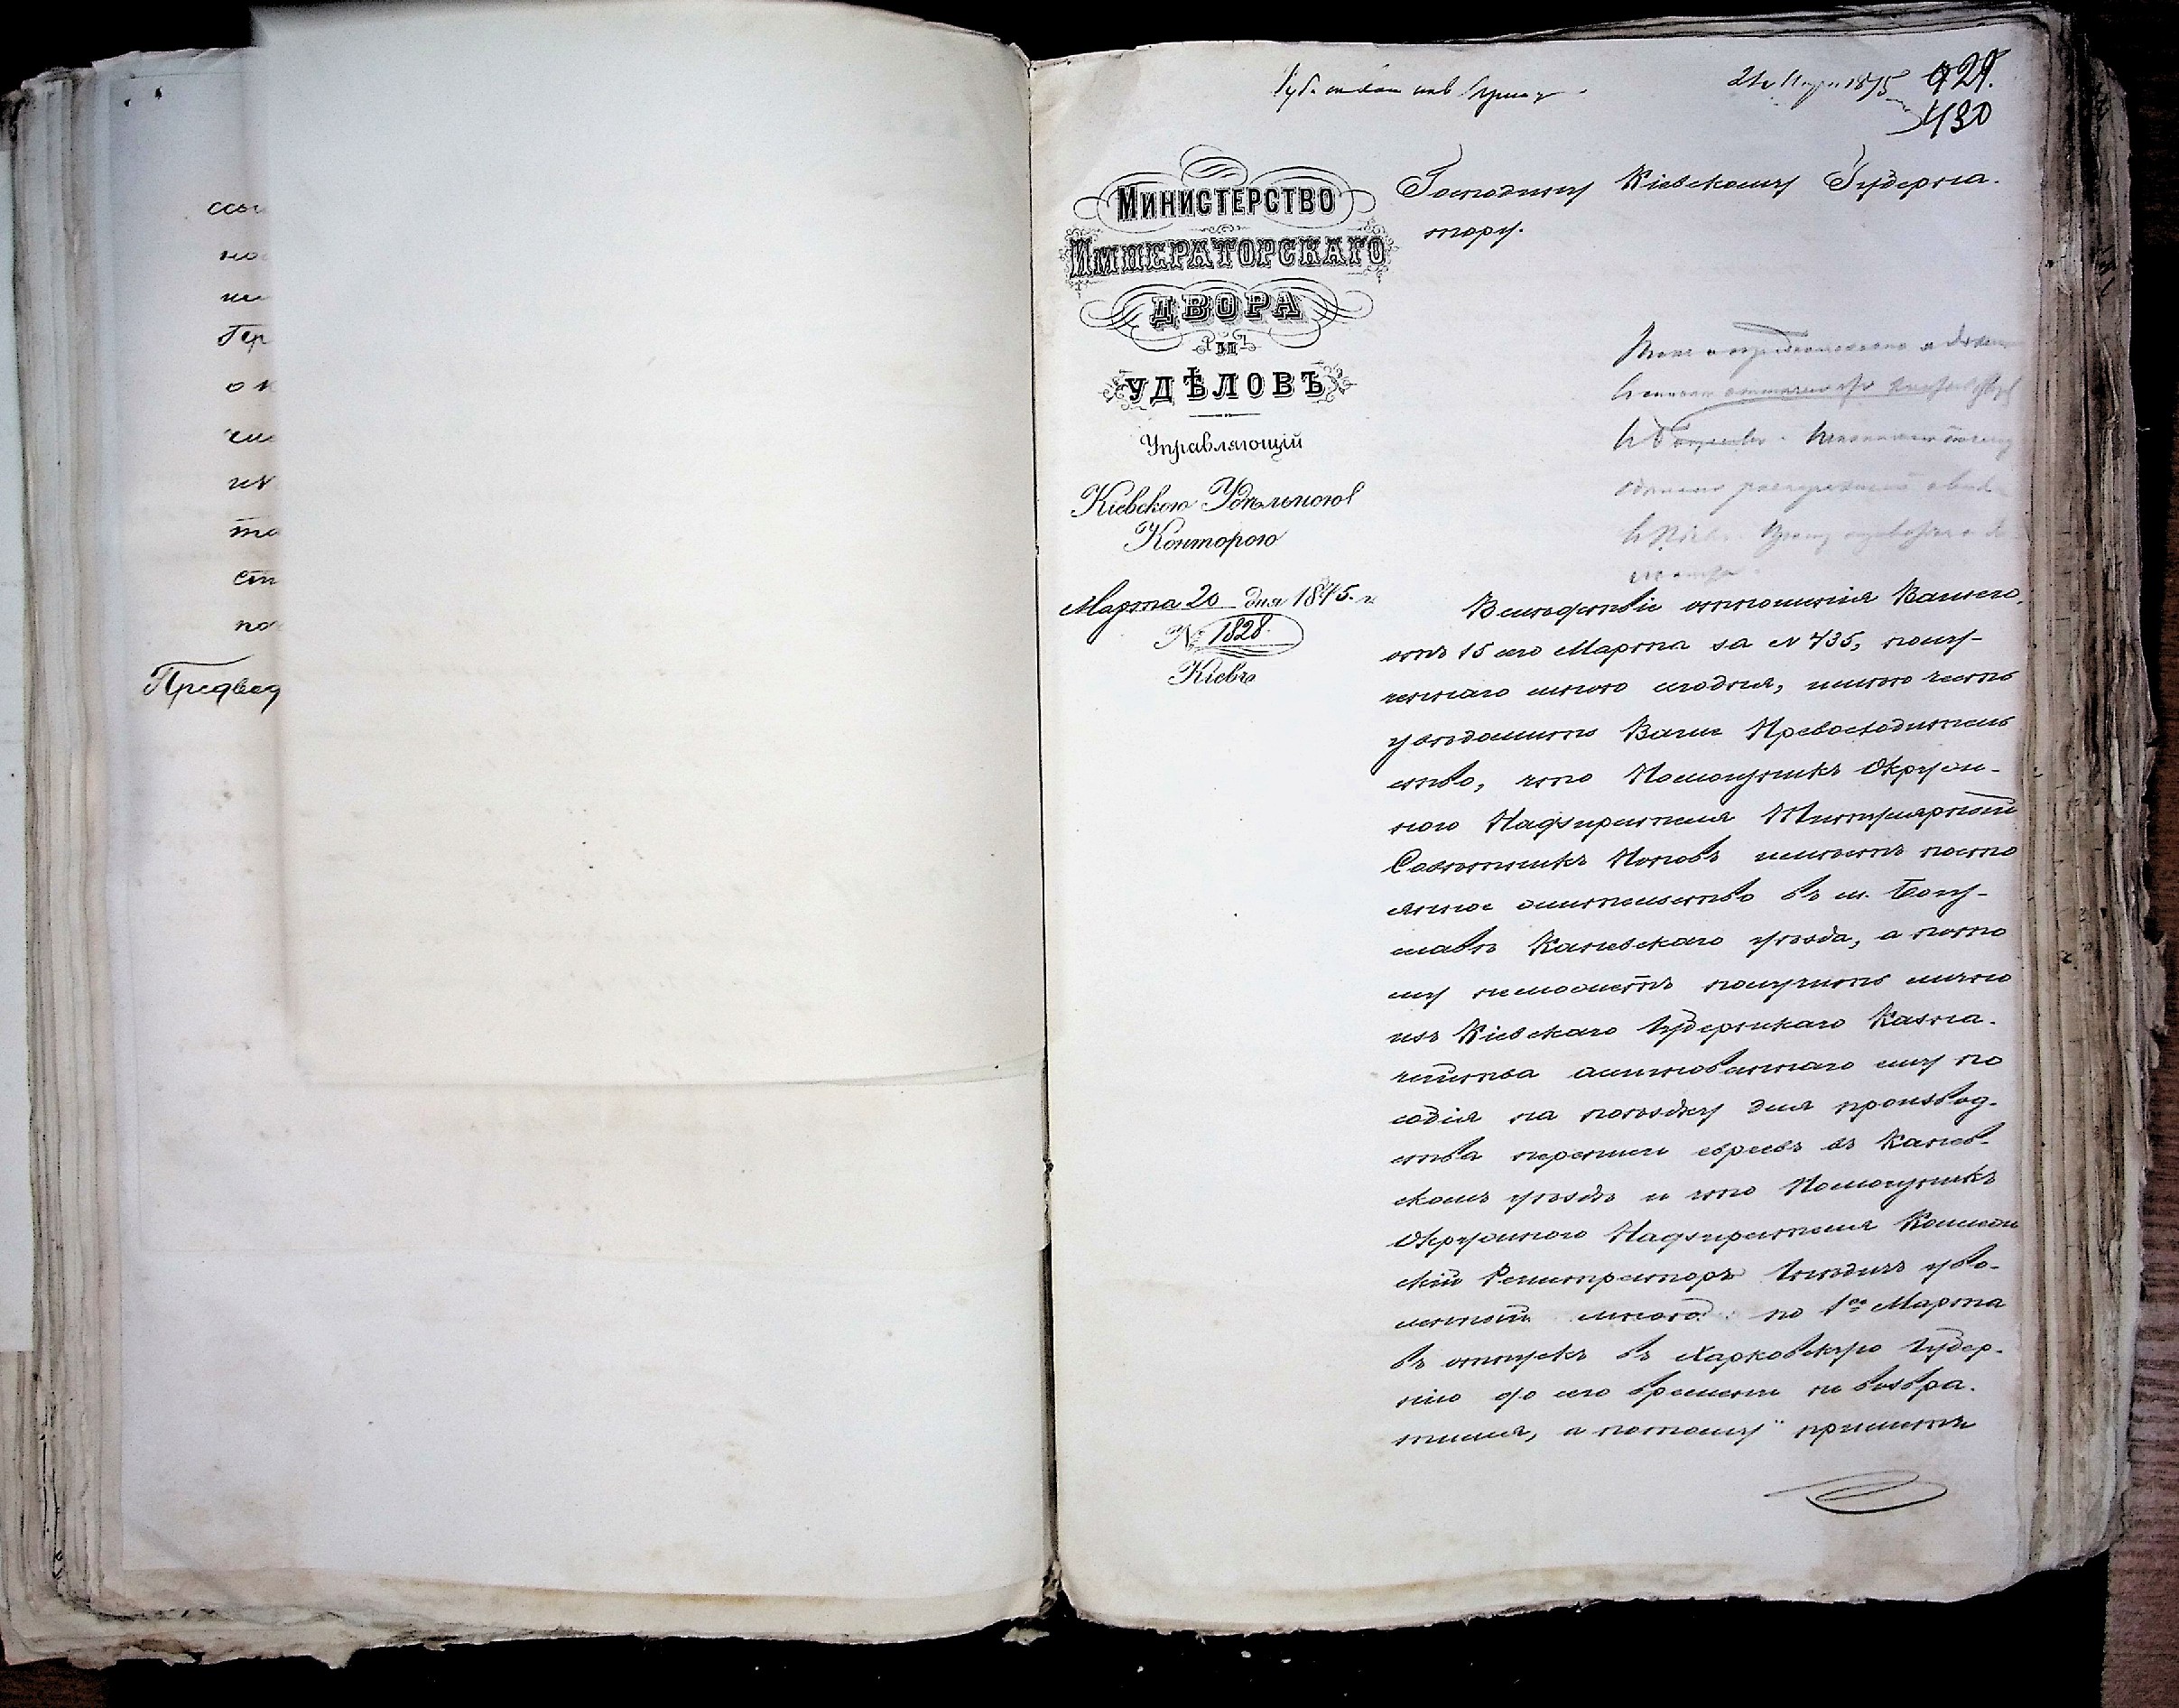 ссы
но
Гер
о к
та
ст
по
Предвод
929.
430
21 Марта 1875
Министерство
Императорскаго
Двора
и
Удѣловъ
Управляющій
Кіевскою Удѣльною
Конторою
Марта 20 дня 1875 г.
№ 1828.
Кіевъ
Господину Кіевскому Губерна-
тору.
Вслѣдствіе отношенія Вашего,
отъ 15 сего Марта за N 735, полу-
ченнаго мною сегодня, имѣю честь
увѣдомить Ваше Превосходитель
ство, что Помощникъ Окруж-
ного Надзирателя Титулярный
Совѣтникъ Поповъ имѣетъ посто
янное жительство въ м. Богу-
славѣ Каневскаго уѣзда, а пото
му неможетъ получить лично
изъ Кіевскаго Губернскаго Казна-
чейства ассигнованнаго ему по
собія на поѣздку для производ-
ства переписи евреевъ въ Канев-
скомъ уѣздѣ и что Помощникъ
Окружного Надзирателя Коллеж
скій Регистраторъ уво-
ленный мною по 1ое Марта
въ отпускъ въ Харьковскую Губер-
нію до сего времени не возвра-
тился, а потому приметъ